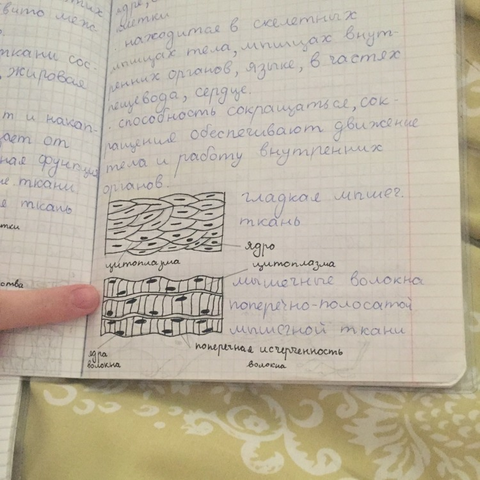 тких
буто меж-
ткани сос-
, жировая
т и накап-
щает от
ная функция
ие ткани.
я ткань
тки
ества
ядре, 
клетки
· находится в скелетных
мышцах тела, мышцах внут-
ренних органов, языке, в частях
пещевода, сердце.
· способность сокращаться, сок-
ращения обеспечивают движение
тела и работу внутренних
органов.
гладкая мышеч.
ткань
ядро
цитоплазма
цитоплазма
мышечные волокна
поперечно-полосатой
мышечной ткани
ядра
волокна
поперечная исчерченность
волокна